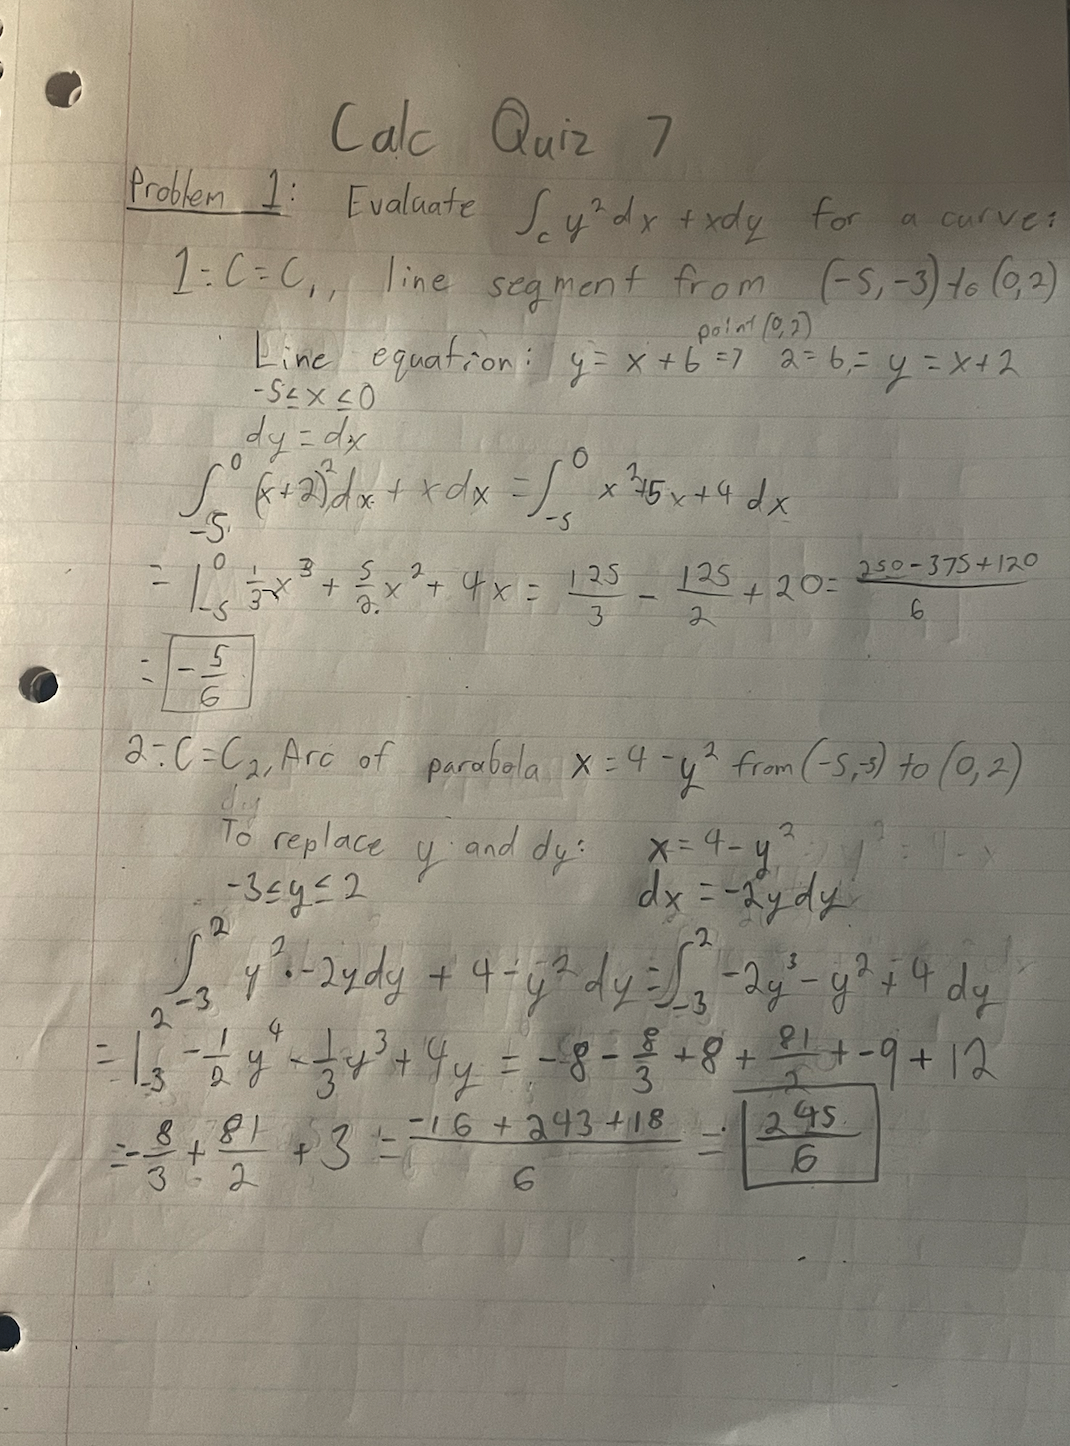 Calc Quiz 7
Problem 1: Evaluate ∫_C y²dx + xdy for a curve:
1: C = C₁, line segment from (-5,-3) to (0,2)
point (0,2)
Line equation: y = x + b => 2 = b, = y = x+2
-5 ≤ x ≤ 0
dy = dx
∫_{-5}^{0} (x+2)²dx + xdx = ∫_{-5}^{0} x²+5x+4 dx
= |_{-5}^{0} 1/3 x³ + 5/2 x² + 4x = 125/3 - 125/2 + 20 = (250-375+120)/6
= -5/6
2: C = C₂, Arc of parabola x = 4-y² from (-5,-3) to (0,2)
To replace y and dy: x = 4-y²
-3 ≤ y ≤ 2 dx = -2ydy
∫_{-3}^{2} y²·-2ydy + 4-y² dy = ∫_{-3}^{2} -2y³-y²+4 dy
= |_{-3}^{2} -1/2 y⁴ - 1/3 y³ + 4y = -8 - 8/3 + 8 + 81/2 + -9 + 12
= -8/3 + 81/2 + 3 = (-16+243+18)/6 = 245/6